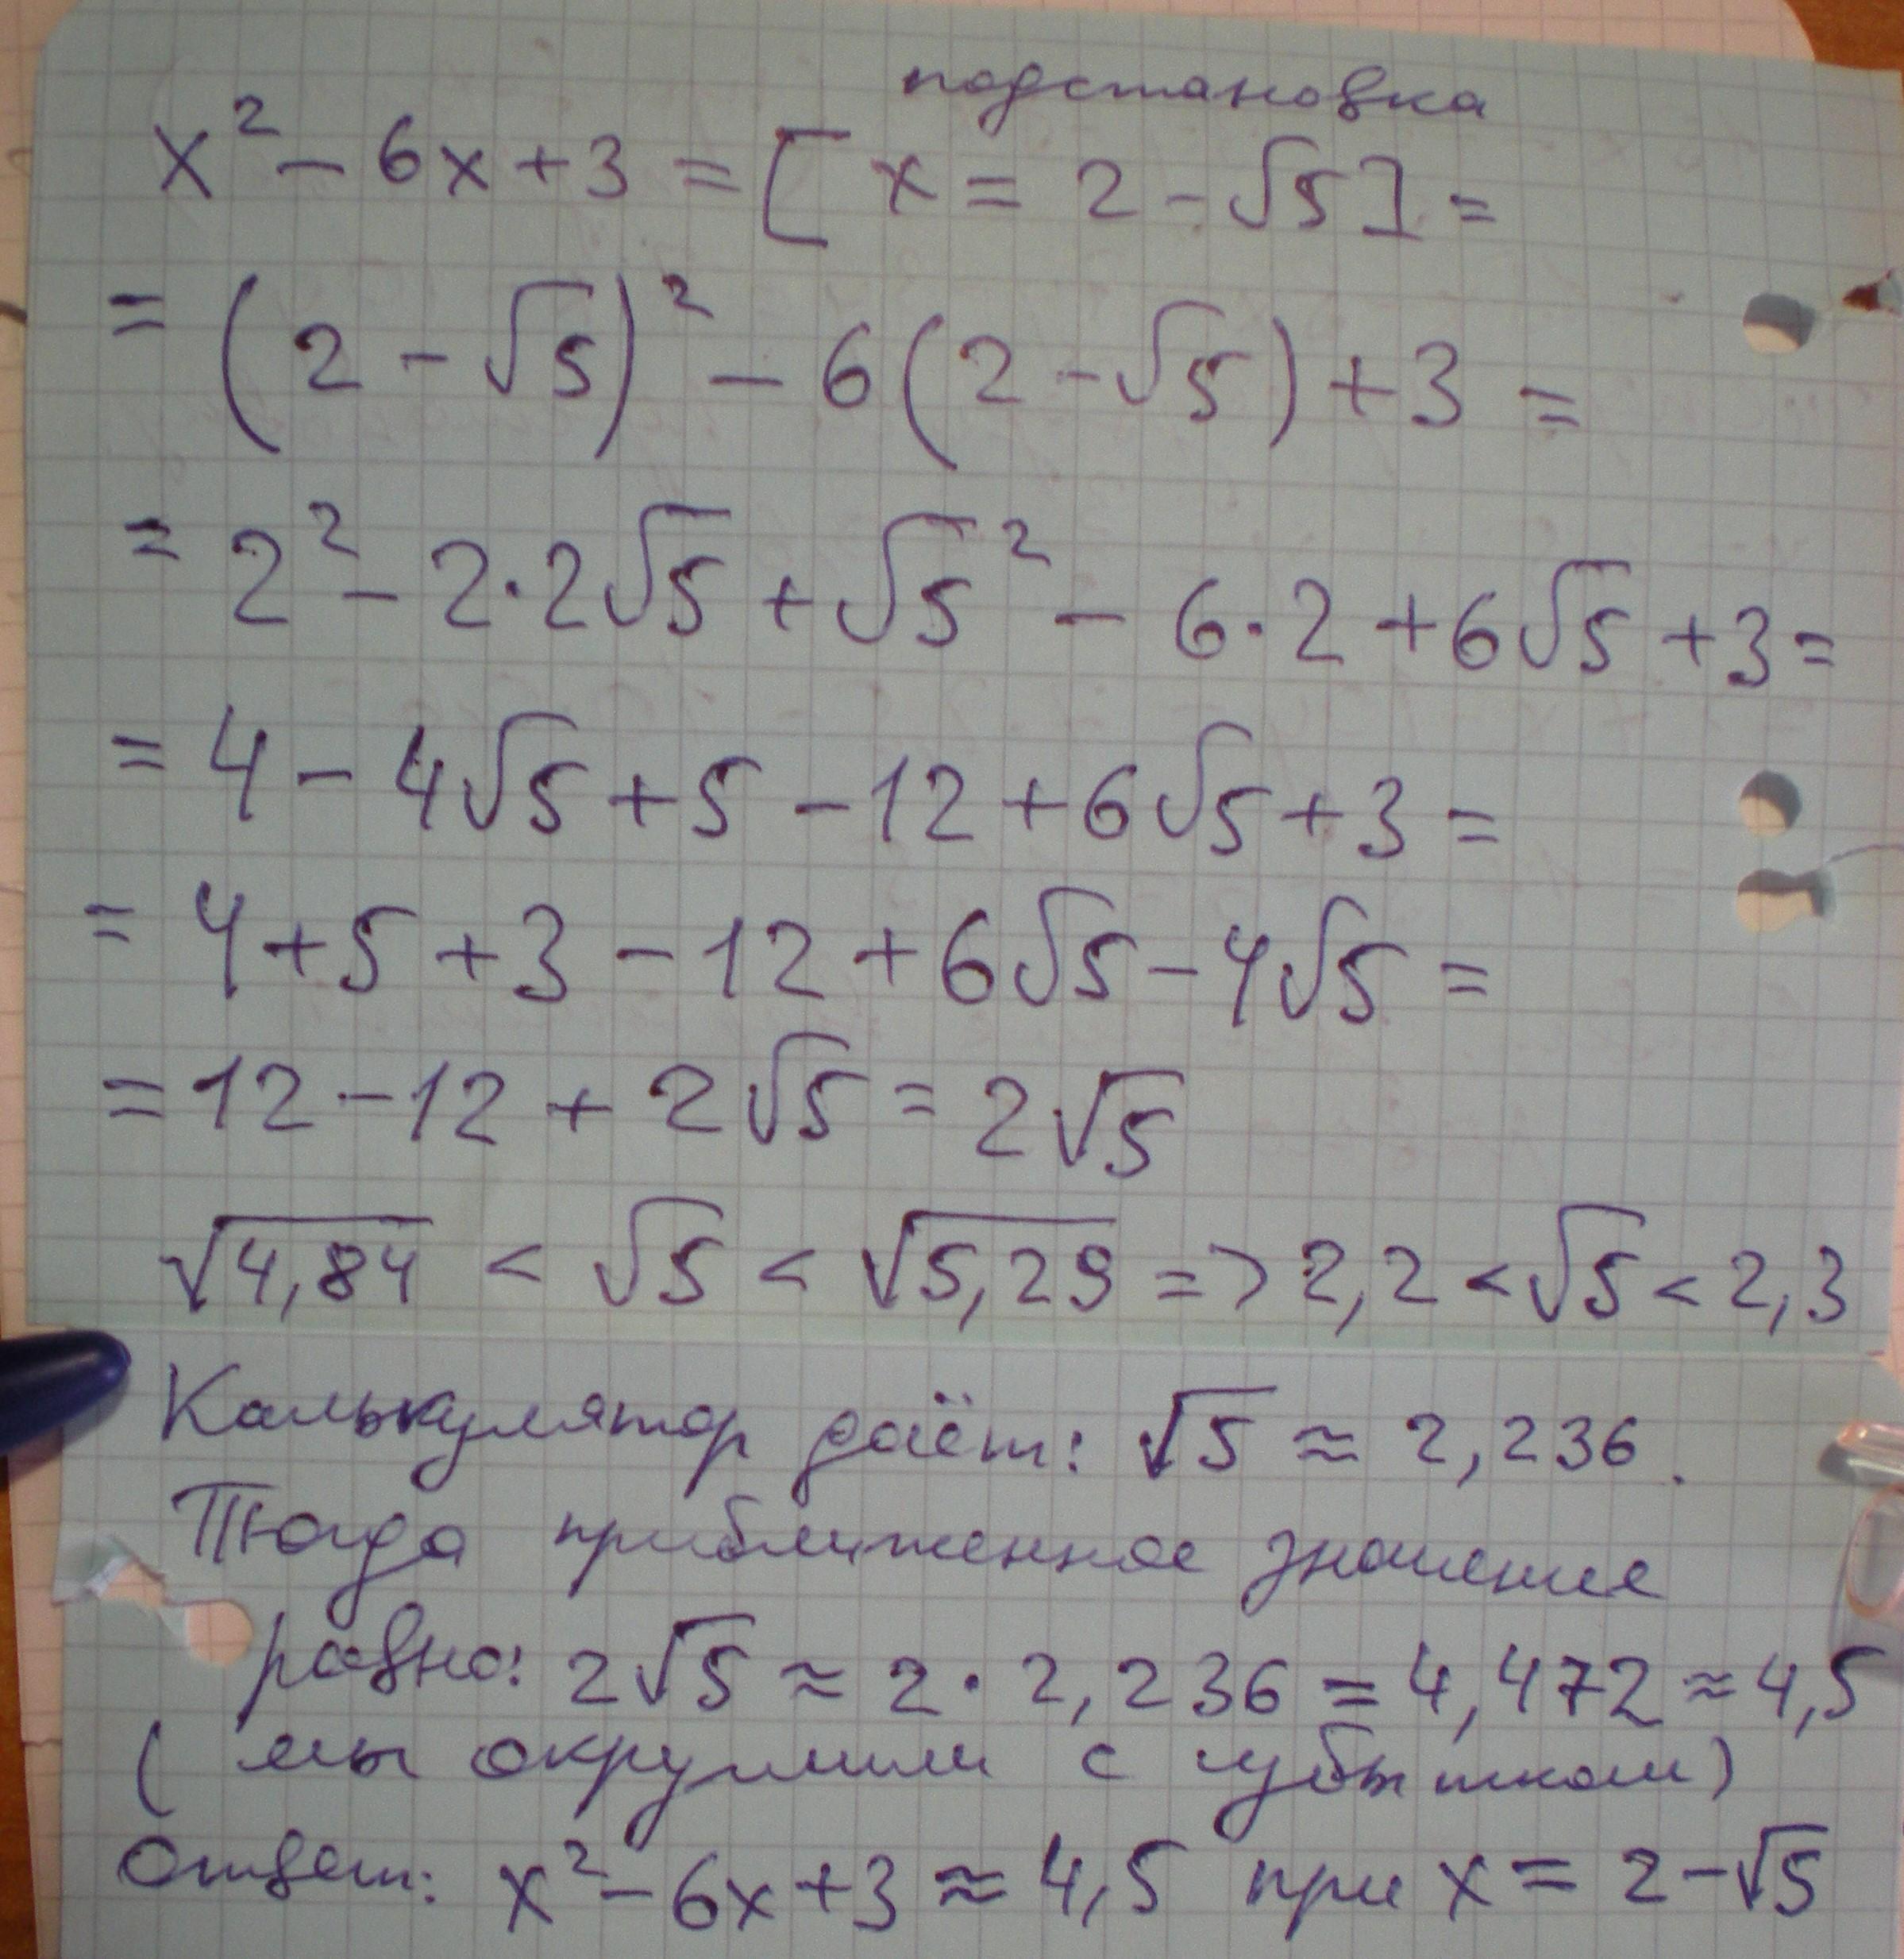 подстановка
x² − 6x + 3 = [ x = 2 − √5 ] =
= (2 − √5)² − 6(2 − √5) + 3 =
= 2² − 2·2√5 + √5² − 6·2 + 6√5 + 3 =
= 4 − 4√5 + 5 − 12 + 6√5 + 3 =
= 4 + 5 + 3 − 12 + 6√5 − 4√5 =
= 12 − 12 + 2√5 = 2√5
√4,84 < √5 < √5,29 => 2,2 < √5 < 2,3
Калькулятор даёт: √5 ≈ 2,236.
Тогда приближенное значение
равно: 2√5 ≈ 2·2,236 = 4,472 ≈ 4,5
(мы округлили с убытком)
Ответ: x² − 6x + 3 ≈ 4,5 при x = 2 − √5